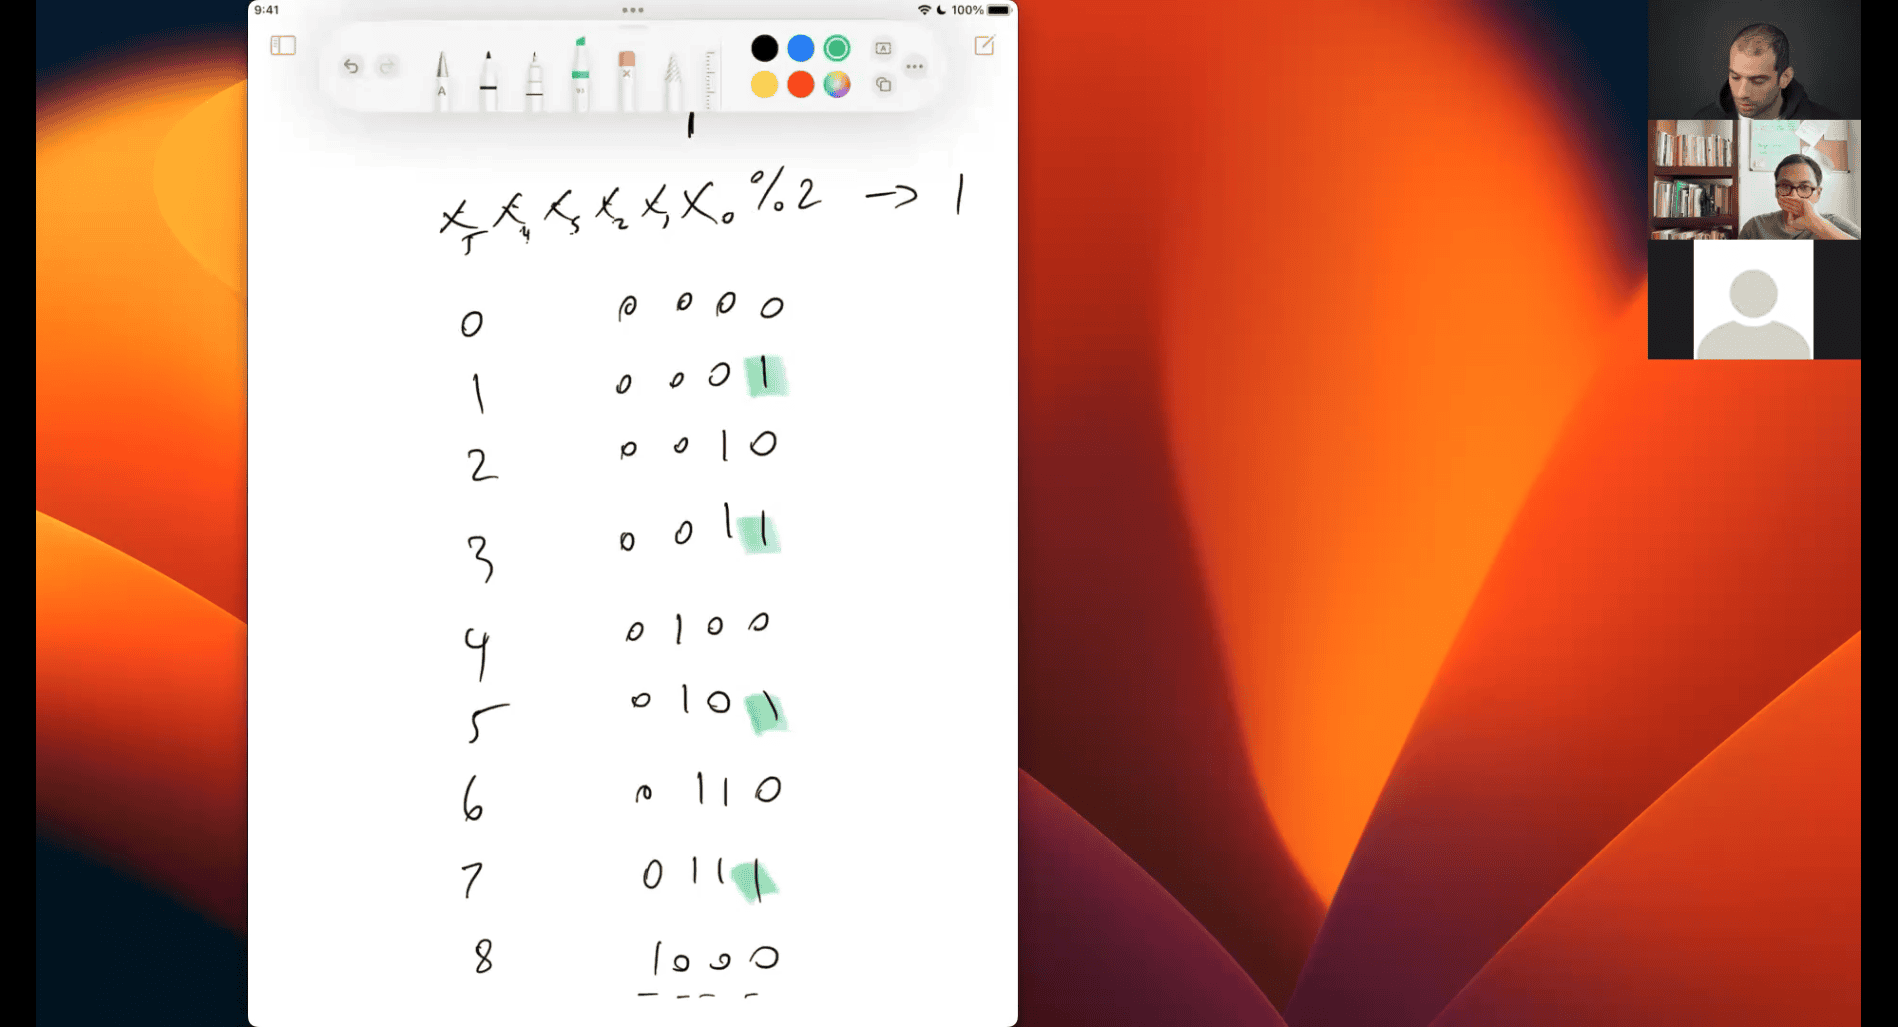 9:41 100%
A 93 A
x₅ x₄ x₃ x₂ x₁ x₀ % 2 → 1
0 0 0 0 0
1 0 0 0 1
2 0 0 1 0
3 0 0 1 1
4 0 1 0 0
5 0 1 0 1
6 0 1 1 0
7 0 1 1 1
8 1 0 0 0